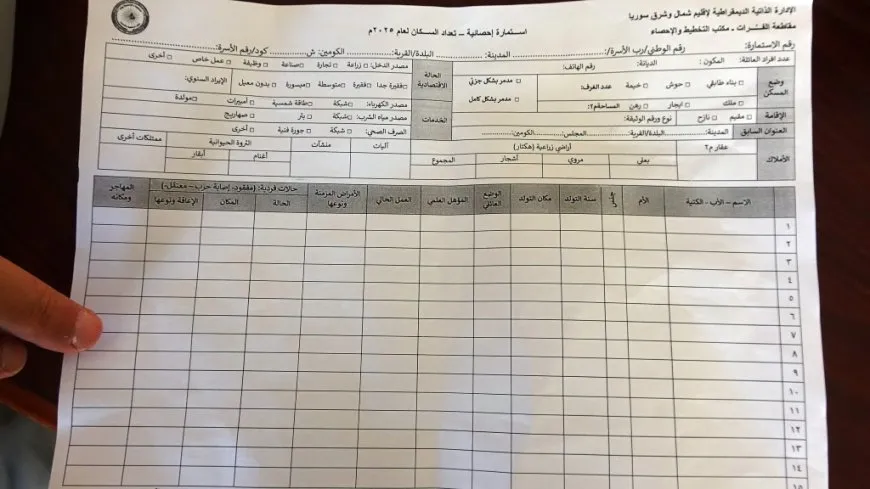 الإدارة الذاتية الديمقراطية لإقليم شمال وشرق سوريا
مقاطعة الفـرات - مكتب التخطيط والإحصاء
استمارة إحصائية – تعداد السكان لعام ٢٠٢٥م
رقم الاستمارة: رقم الوطني/رب الأسرة/: المدينة: البلدة/القرية: الكومين: ش كود/رقم الأسرة:
عدد افراد العائلة: المكون: الديانة: رقم الهاتف:
الحالة الاقتصادية
مصدر الدخل: □ زراعة □ تجارة □ صناعة □ وظيفة □ عمل خاص □ أخرى
□ فقيرة جدا □ فقيرة □ متوسطة □ ميسورة □ بدون معيل الإيراد السنوي:
وضع المسكن
□ بناء طابقي □ حوش □ خيمة عدد الغرف: □ مدمر بشكل جزئي
□ ملك □ ايجار □ رهن المساحة م٢: □ مدمر بشكل كامل
الخدمات
مصدر الكهرباء: □ شبكة □ طاقة شمسية □ أمبيرات □ مولدة
مصدر مياه الشرب: □ شبكة □ بئر □ صهاريج
الصرف الصحي: □ شبكة □ جورة فنية □ أخرى
الإقامة □ مقيم □ نازح نوع ورقم الوثيقة:
العنوان السابق المدينة: البلدة/القرية: المجلس: الكومين:
الأملاك عقار م٢ أراضي زراعية (هكتار) آليات منشآت الثروة الحيوانية ممتلكات أخرى
بعلي مروي أشجار المجموع أغنام أبقار
الاسم – الأب – الكنية الأم جنس سنة التولد مكان التولد الوضع العائلي المؤهل العلمي العمل الحالي الأمراض المزمنة ونوعها حالات فردية: (مفقود، إصابة حرب – معتقل) المهاجر ومكانه
الحالة المكان الإعاقة ونوعها
١
٢
٣
٤
٥
٦
٧
٨
٩
١٠
١١
١٢
١٣
١٤
١٥